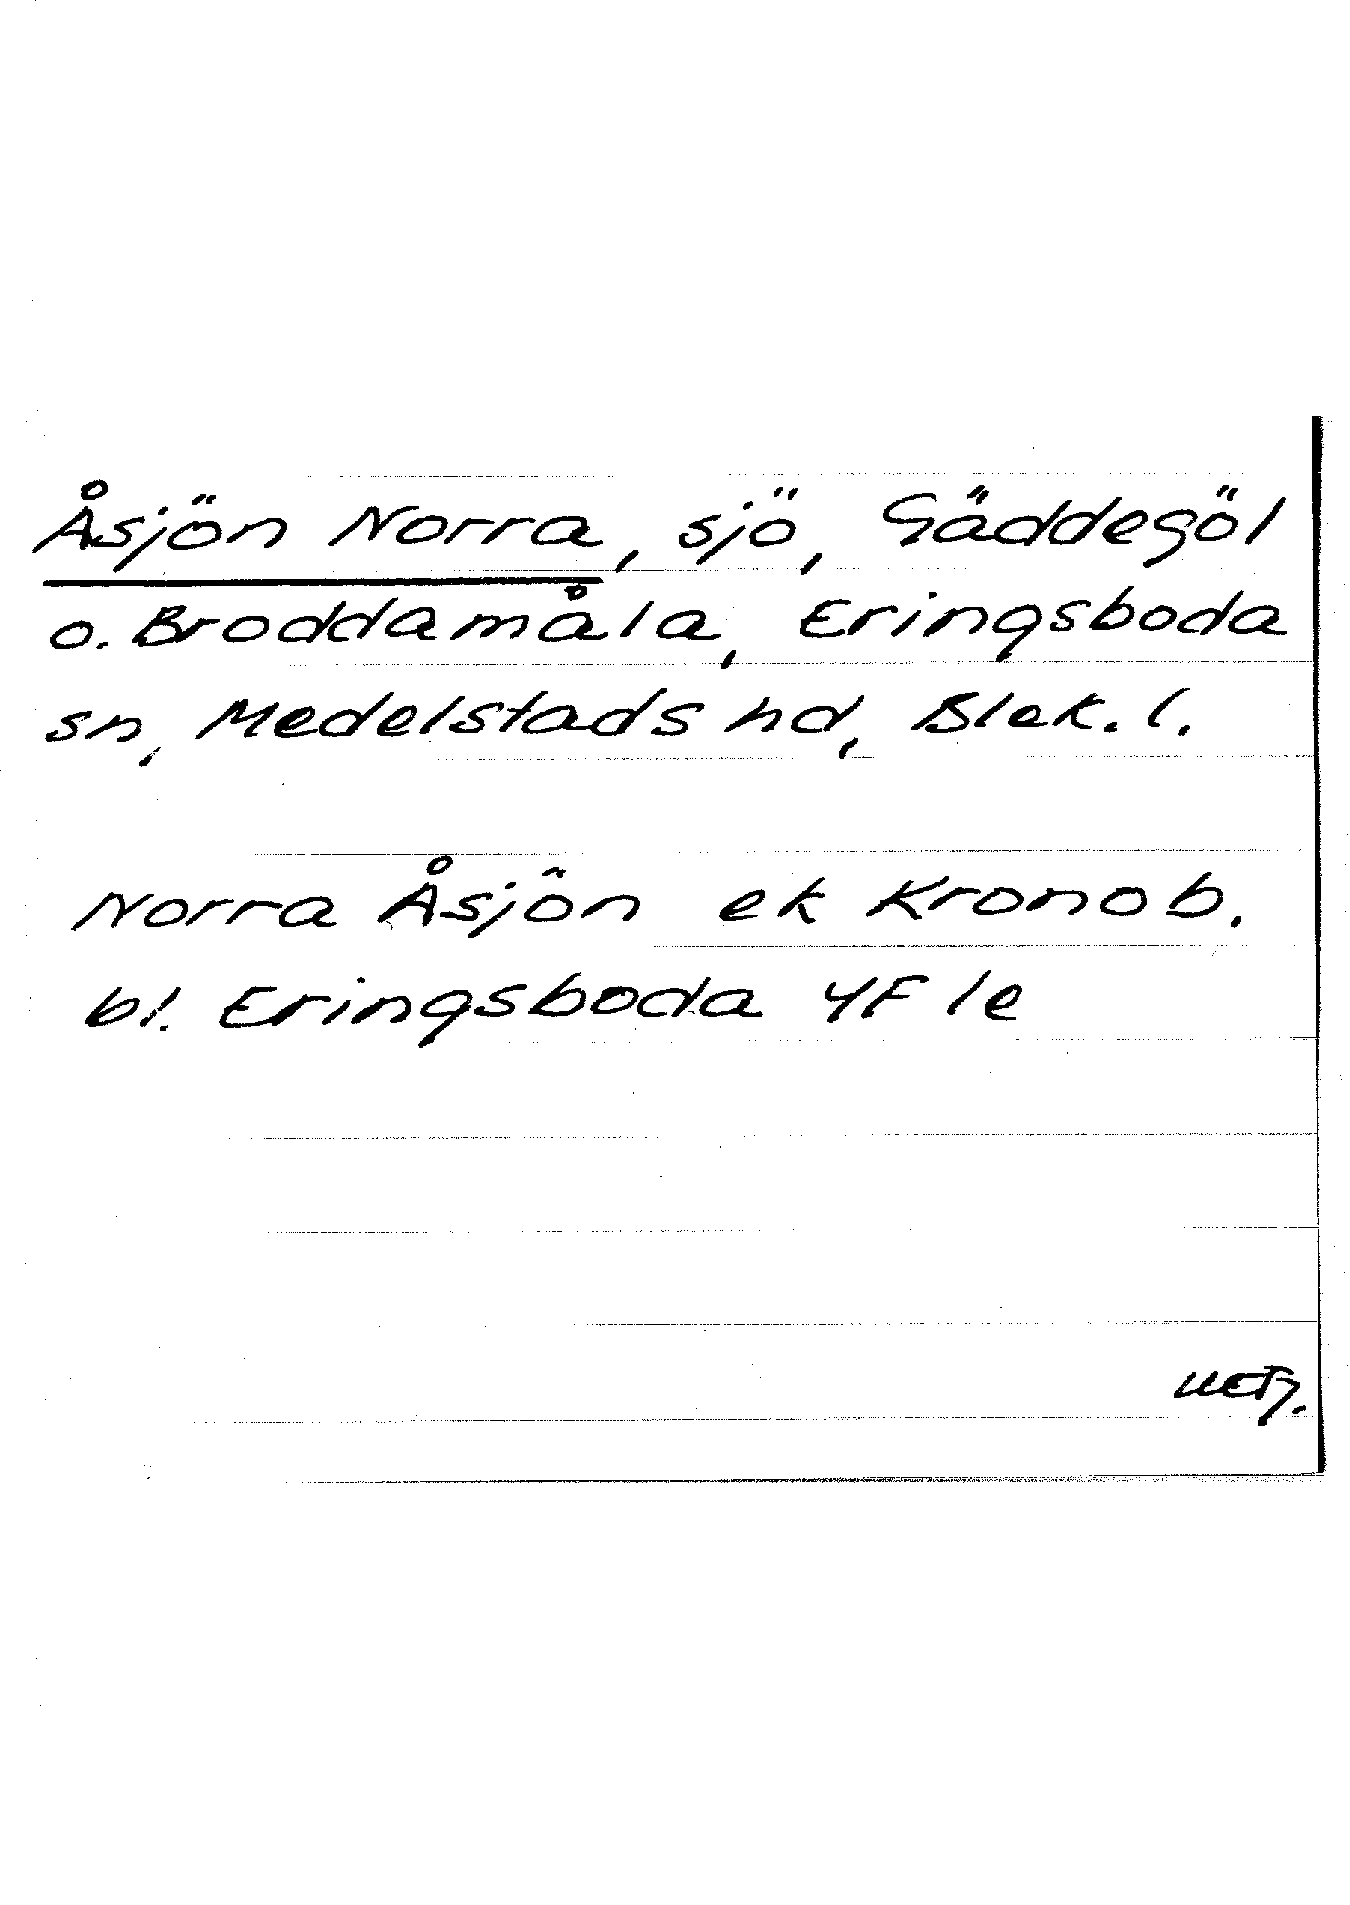 Åsjön Norra, sjö, Gäddegöl
o. Broddamåla, Eringsboda
sn, Medelstads hd, Blek. l.
Norra Åsjön ek Kronob.
bl. Eringsboda 4F 1e